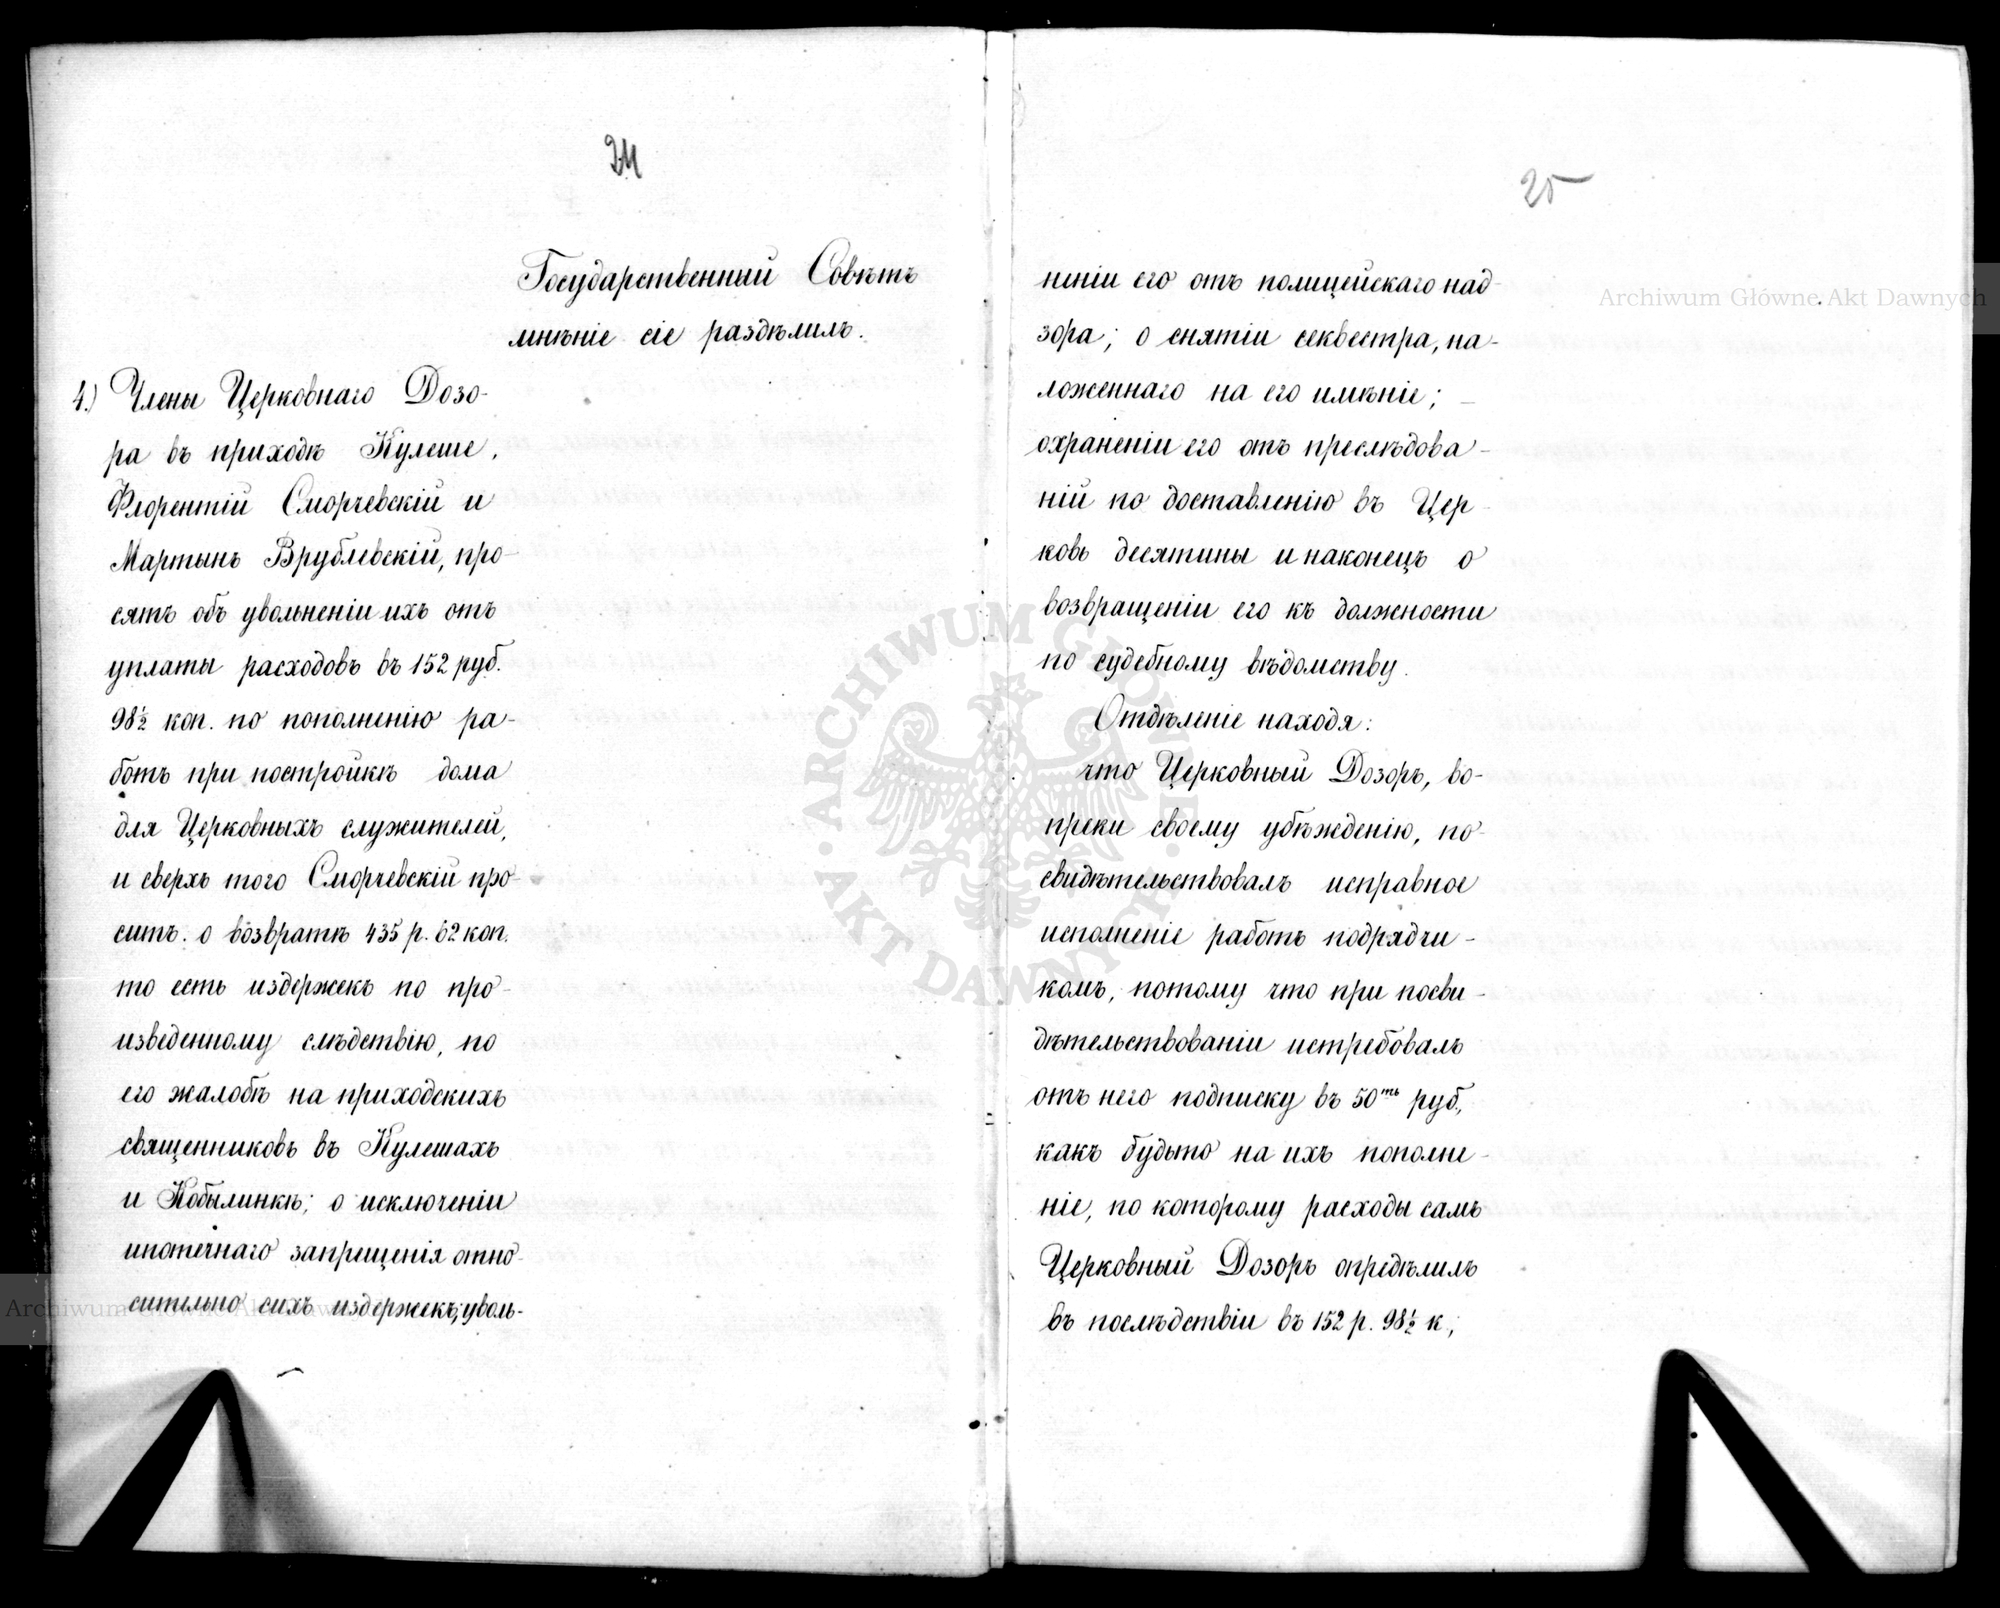 24
Государственный Совѣтъ
мнѣніе сіе раздѣлилъ.
4.) Члены Церковнаго Дозо-
ра въ приходѣ Кулеше,
Флорентій Сморчевскій и
Мартынъ Врублевскій, про-
сятъ объ увольненіи ихъ отъ
уплаты расходовъ въ 152 руб.
98½ коп. по пополненію ра-
ботъ при постройкѣ дома
для Церковныхъ служителей,
и сверхъ того Сморчевскій про-
ситъ о возвратѣ 435 р. 62 коп.
то есть издержекъ по про-
изведенному слѣдствію, по
его жалобѣ на приходскихъ
священниковъ въ Кулешахъ
и Кобылинкѣ; о исключеніи
ипотечнаго запрещенія отно-
сительно сихъ издержекъ; уволь-
25
неніи его отъ полицейскаго над-
зора; о снятіи секвестра, на-
ложеннаго на его имѣніе;
охраненіи его отъ преслѣдова-
ній по доставленію въ Цер-
ковь десятины и наконецъ о
возвращеніи его къ должности
по судебному вѣдомству.
Отдѣленіе находя:
что Церковный Дозоръ, во-
преки своему убѣжденію, по-
свидѣтельствовалъ исправное
исполненіе работъ подрядчи-
комъ, потому что при посви-
дѣтельствованіи истребовалъ
отъ него подписку въ 50ть руб.,
какъ будьто на ихъ пополне-
ніе, по которому расходы самъ
Церковный Дозоръ опредѣлилъ
въ послѣдствіи въ 152 р. 98½ к.;
Archiwum Główne Akt Dawnych
Archiwum Główne Akt Dawnych
ARCHIWUM GŁÓWNE AKT DAWNYCH